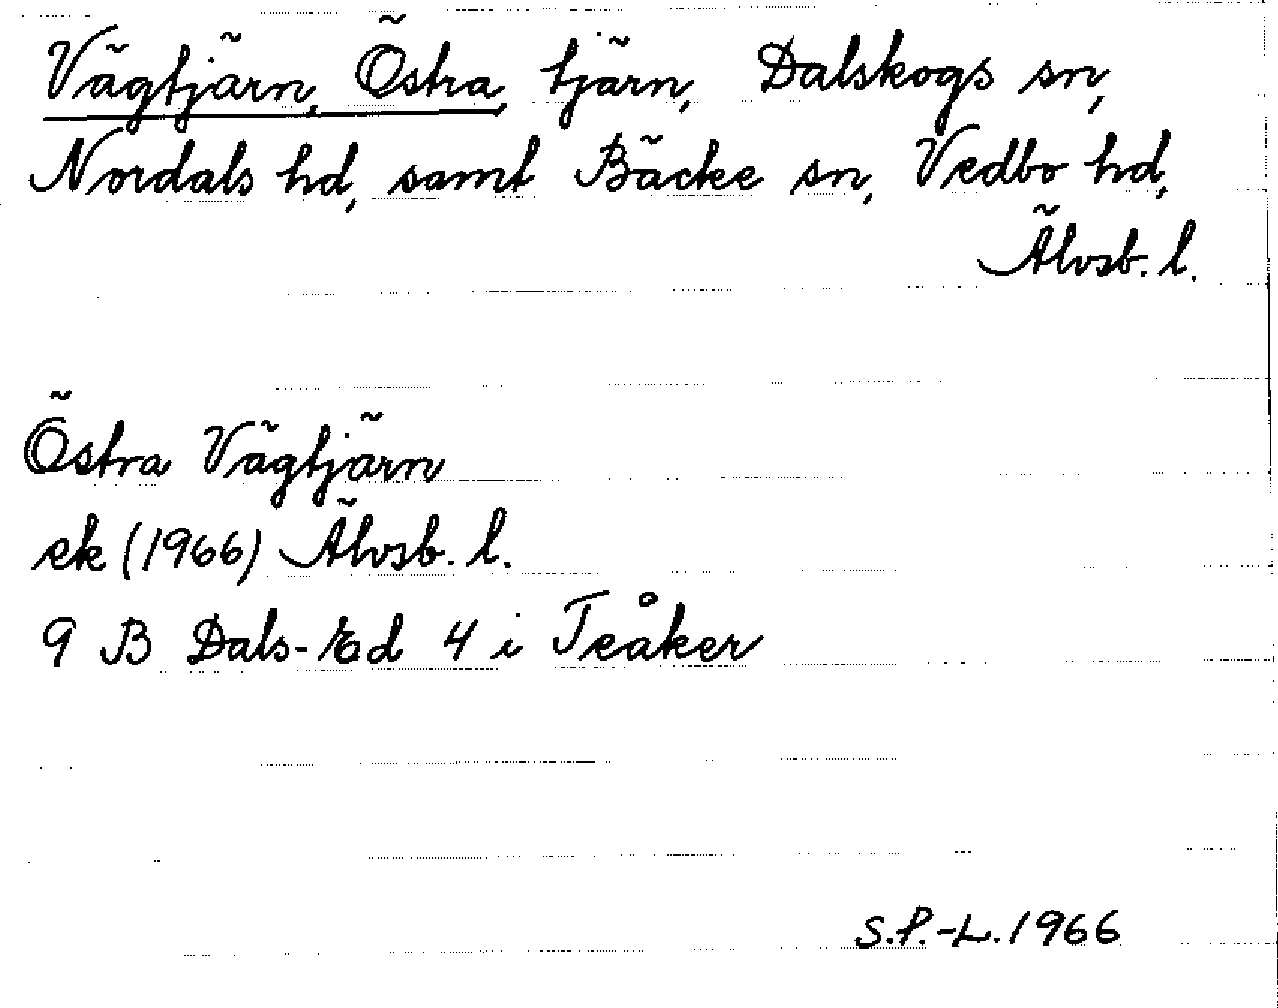 Vägtjärn, Östra, tjärn, Dalskogs sn,
Nordals hd, samt Bäcke sn, Vedbo hd,
Älvsb. l.
Östra Vägtjärn
ek (1966) Älvsb. l.
9 B Dals-Ed 4 i Teåker
S.P.-L. 1966